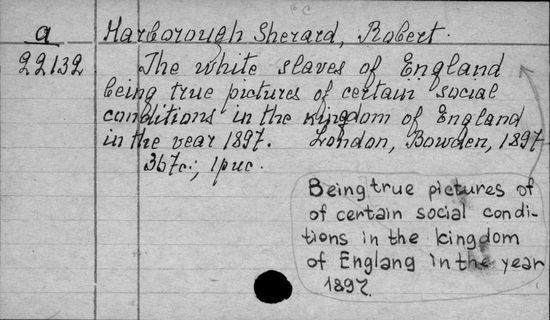 a
Harborough Sherard, Robert.
22132
The white slaves of England
being true pictures of certain social
conditions in the kingdom of England
in the year 1897. London, Bowden, 1897
367c.; 1рис.
Being true pictures of
of certain social condi-
tions in the kingdom
of Englang in the year
1897.